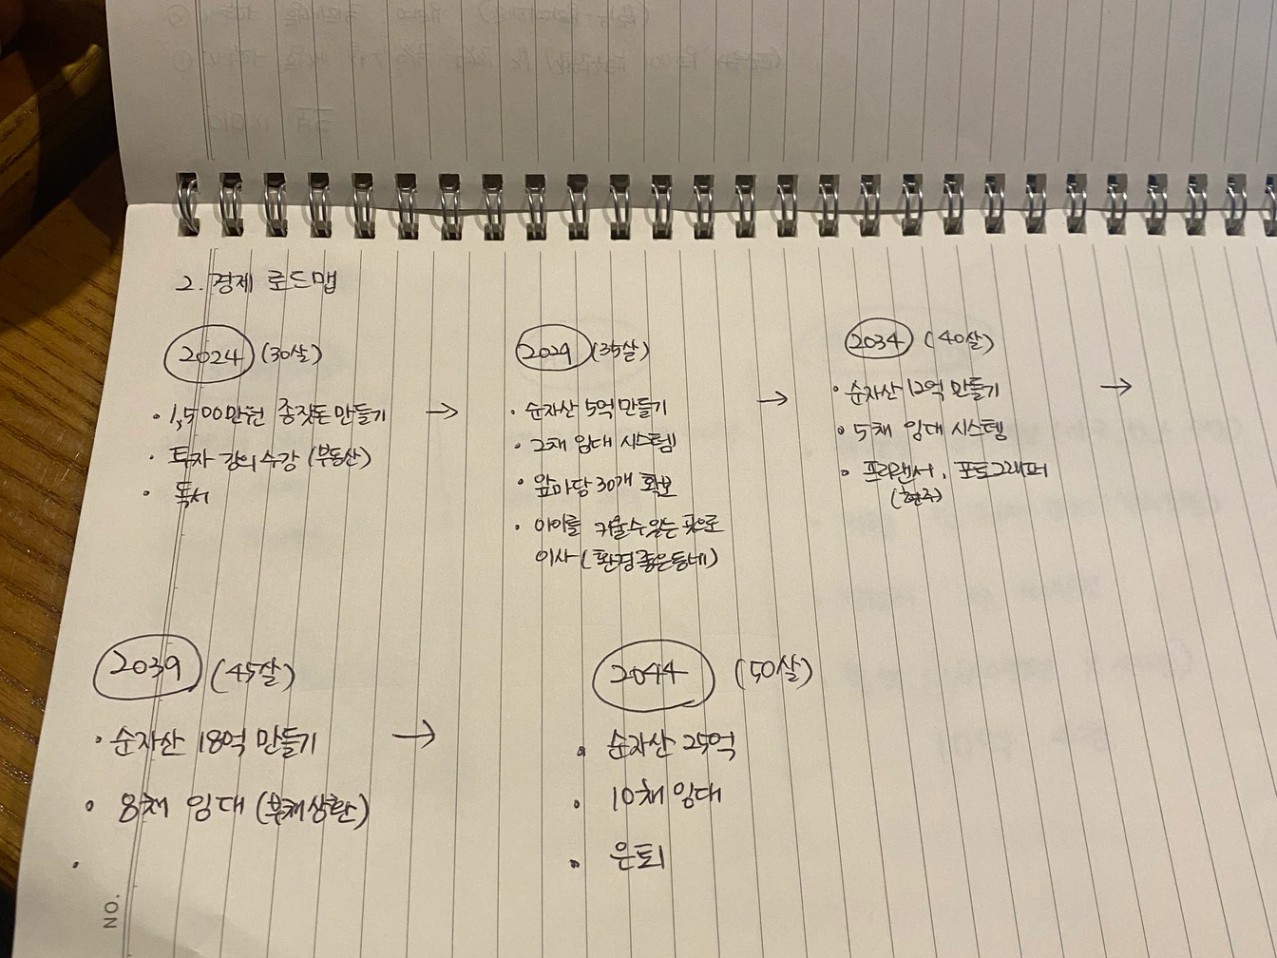 2. 경제 로드맵
2024 (30살)
• 1,500만원 종잣돈 만들기 →
• 투자 강의 수강 (부동산)
• 독서
2029 (35살)
• 순자산 5억 만들기 →
• 2채 임대 시스템
• 앞마당 30개 확보
• 아이를 키울 수 있는 곳으로
이사 (환경 좋은 동네)
2034 (40살)
• 순자산 12억 만들기 →
• 5채 임대 시스템
• 프리랜서, 포토그래퍼
(현주)
2039 (45살)
• 순자산 18억 만들기 →
• 8채 임대 (부채상환)
•
2044 (50살)
• 순자산 25억
• 10채 임대
• 은퇴
NO.